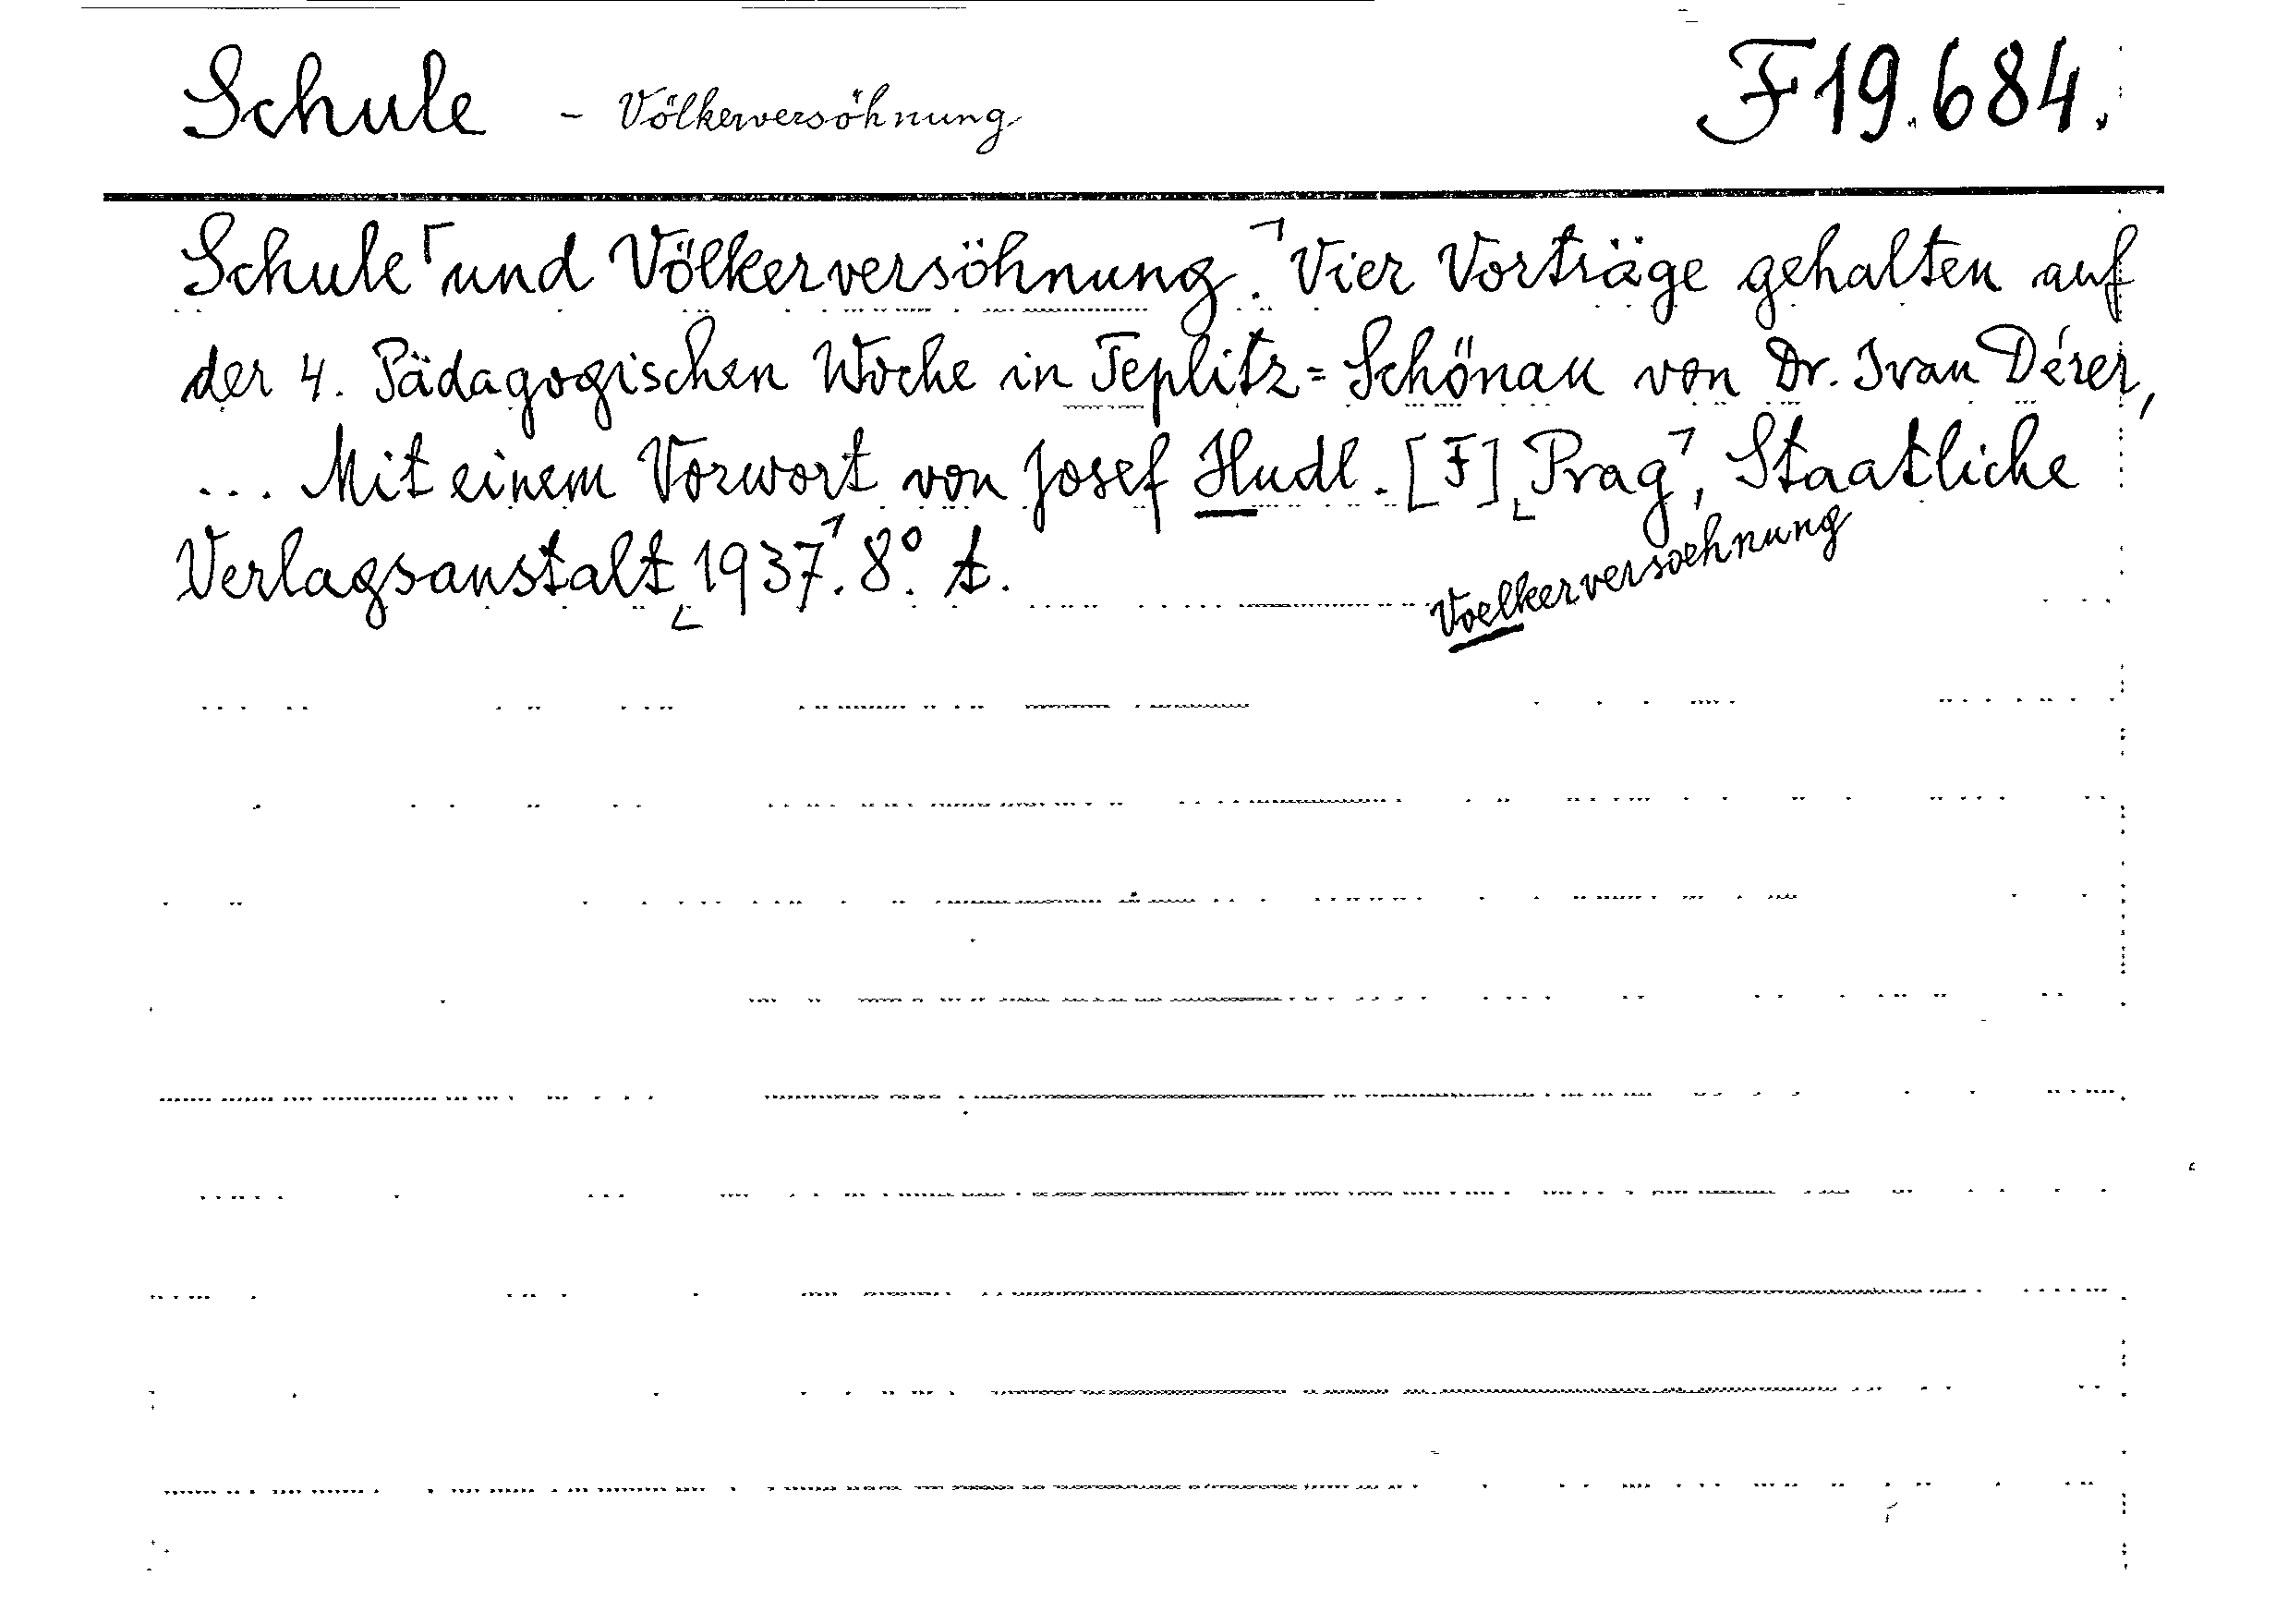 Schule - Völkerversöhnung F 19.684.
Schule ⌜und Völkerversöhnung.⌝ Vier Vorträge gehalten auf
der 4. Pädagogischen Woche in Teplitz=Schönau von Dr. Ivan Dérer,
... Mit einem Vorwort von Josef Hudl. [F] ⌞Prag⌝, Staatliche
Verlagsanstalt ⌞1937⌝. 8°. t.
Voelkerversoehnung